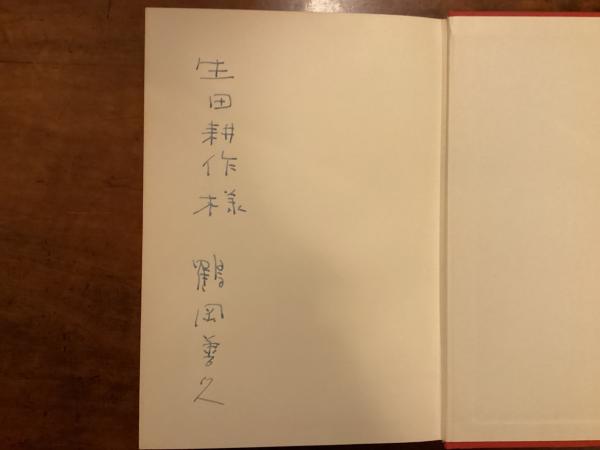 生田耕作様 鶴岡善久